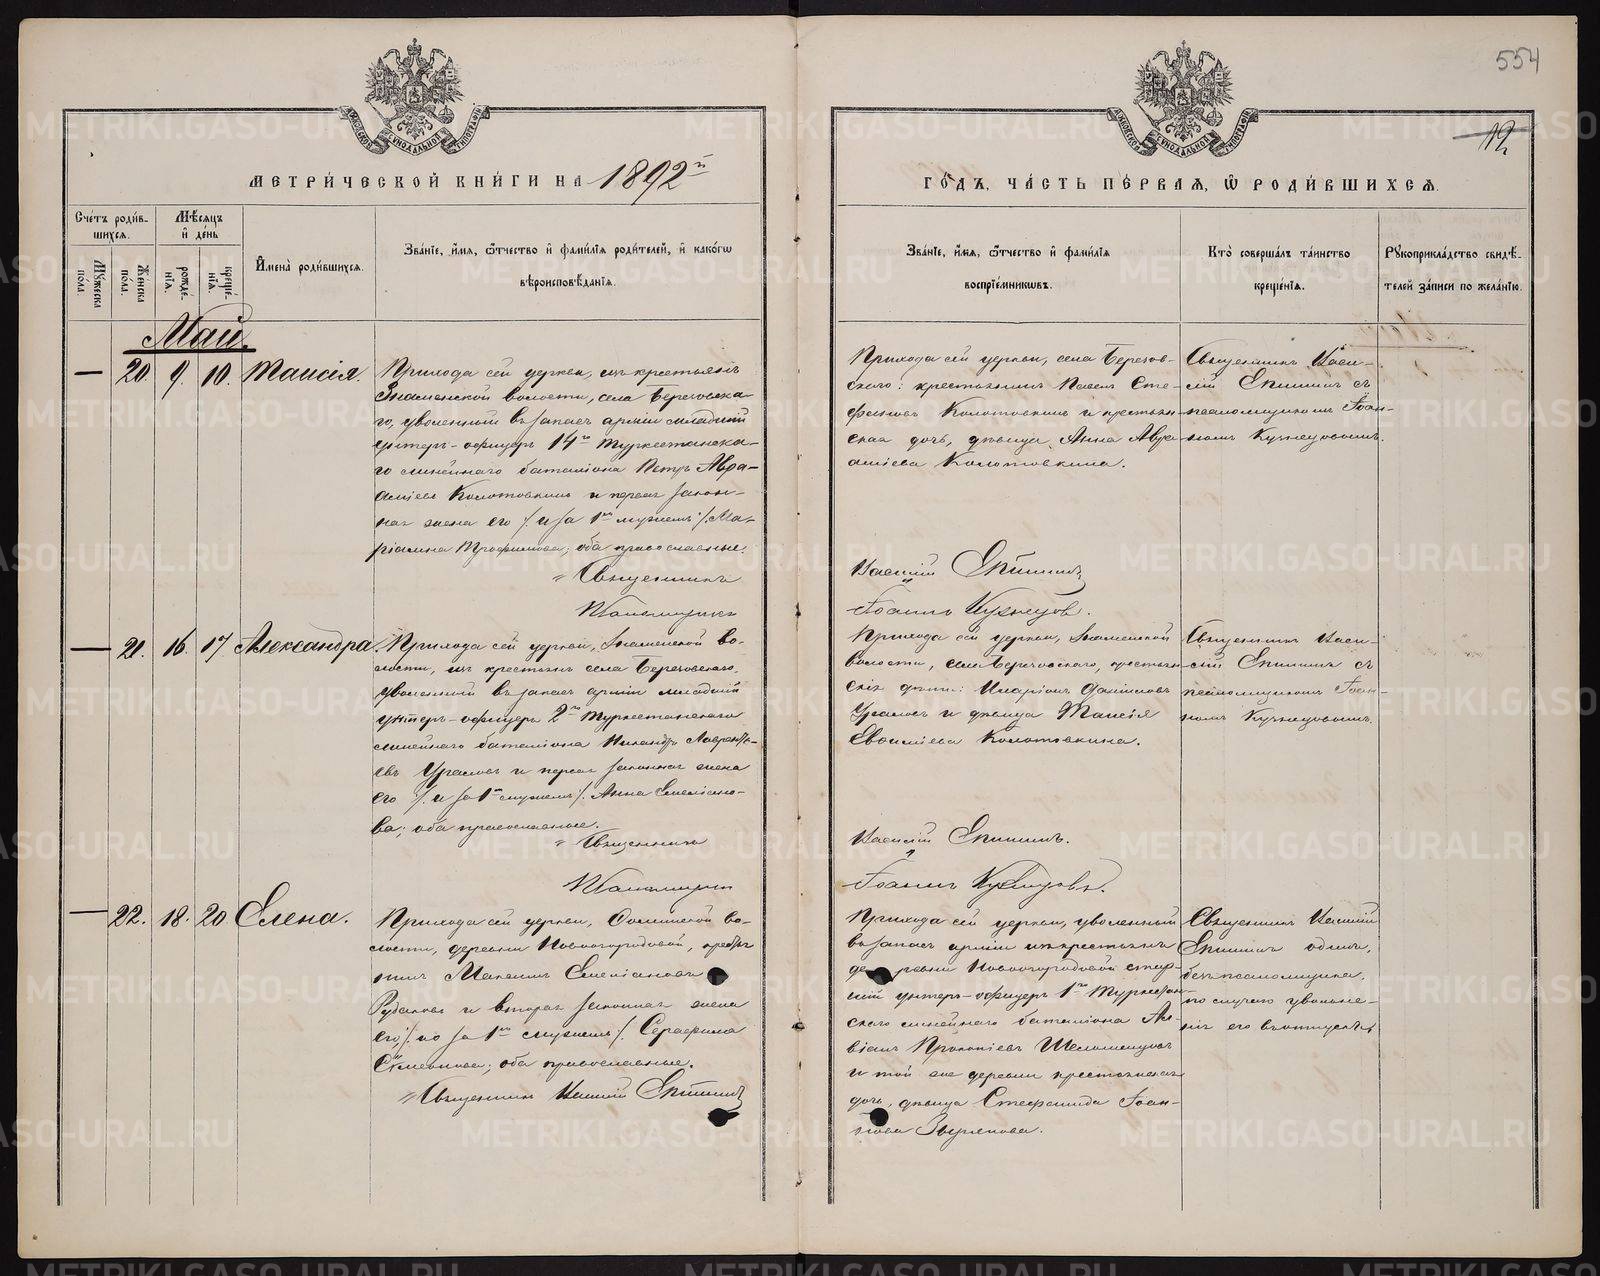 554
12
МОСКОВСКОЙ СѴНОДАЛЬНОЙ ТИПОГРАФІИ
МОСКОВСКОЙ СѴНОДАЛЬНОЙ ТИПОГРАФІИ
МЕТРИ́ЧЕСКОЙ КНИ́ГИ НА 1892й
ГО́ДЪ, ЧА́СТЬ ПЕ́РВАЯ, Ѡ҆ РОДИ́ВШИХСЯ.
Сче́тъ роди́в-
шихся.
Мѣ́сяцъ
и҆ де́нь
Мꙋ́жеска по́ла.
Же́нска по́ла.
рожде́-
нїѧ.
креще́-
нїѧ.
И҆мена̀ роди́вшихся.
Зва́нїе, и҆́мя, ѻ҆́тчество и҆ фами́лїя роди́телей, и҆ како́гѡ
вѣроисповѣ́данїя.
Зва́нїе, и҆́мя, ѻ҆́тчество и҆ фами́лїя
воспрїе́мникѡвъ.
Кто̀ соверша́лъ та́инство
креще́нїя.
Рꙋкоприкла́дство свидѣ́-
телей за́писи по жела́нїю.
Май.
— 20. 9. 10. Таисія.
Прихода сей церкви, изъ крестьянъ
Знаменской волости, села Березовска-
го, уволенный въ запасъ арміи младшій
унтеръ-офицеръ 14го Туркестанска-
го линейнаго баталіона Петръ Авра-
аміевъ Колотовкинъ и первая закон-
ная жена его /: и за 1мъ мужемъ :/ Ма-
ріамна Трофимова; оба православные.
Священникъ
Псаломщикъ
Прихода сей церкви, села Березов-
скаго: крестьянинъ Павелъ Сте-
фановъ Колотовкинъ и крестьян-
ская дочь, дѣвица Анна Авра-
аміева Колотовкина.
Василій Епишинъ
Іоаннъ Кузнецов.
Священникъ Васи-
лій Епишинъ съ
псаломщикомъ Іоан-
номъ Кузнецовымъ.
— 21. 16. 17 Александра.
Прихода сей церкви, Знаменской во-
лости, изъ крестьянъ села Березовскаго,
уволенный въ запасъ арміи младшій
унтеръ-офицеръ 2го Туркестанскаго
линейнаго баталіона Никандръ Лаврентьев-
евъ и первая законная жена
его /: и за 1мъ мужемъ :/ Анна Емеліано-
ва; оба православные.
Священникъ
Псаломщикъ
Прихода сей церкви, Знаменской
волости, села Березовскаго, крестьян-
скія дѣти: Иларіонъ
и дѣвица Таисія
Колотовкина.
Василій Епишинъ.
Іоаннъ Кузнецовъ.
Священникъ Васи-
лій Епишинъ съ
псаломщикомъ Іоан-
номъ Кузнецовымъ.
— 22. 18. 20 Елена.
Прихода сей церкви, во-
лости, деревни Новогородовой,
Максимъ Емеліановъ
Рубаковъ и вторая законная жена
его /: по за 1мъ мужемъ :/ Серафима
оба православные.
Священникъ Василій Епишинъ
Прихода сей церкви, уволенный
въ запасъ арміи изъ крестьянъ
деревни Новогородовой стар-
шій унтеръ-офицеръ 1го Туркестан-
скаго линейнаго баталіона
Прокопіевъ
и той же деревни крестьянская
дочь, дѣвица Стефанида Іоан-
нова Зырянова.
Священникъ Василій
Епишинъ одинъ,
безъ псаломщика,
по случаю увольне-
нія его въ отпускъ.
METRIKI.GASO-URAL.RU